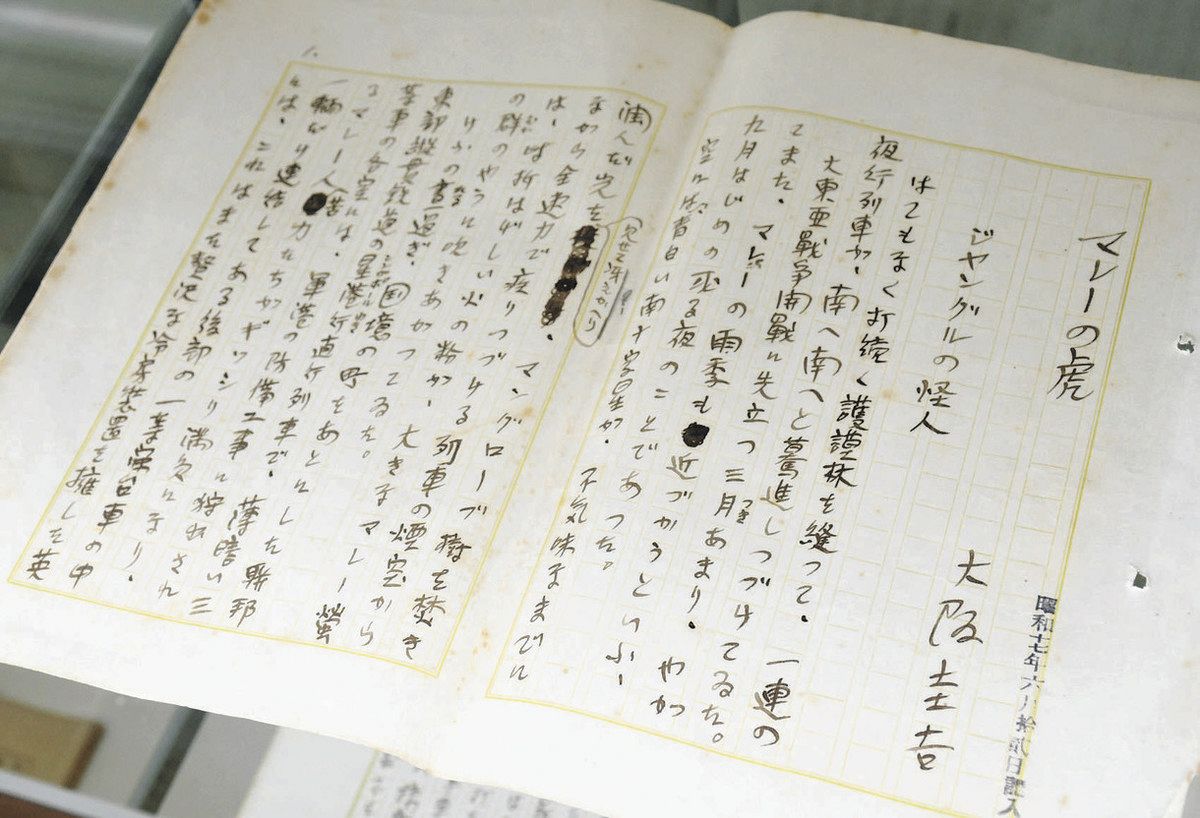 マレーの虎
大阪圭吉
昭和十七年六月拾貳日記入
ジャングルの怪人
はてもなく打続く護謨林を縫つて、一連の
夜行列車が、南へ南へと驀進しつづけてゐた。
大東亜戦争開戦に先立つ三月あまり、やが
てまた、マレーの雨季も近づかうといふ、
九月はじめの或る夜のことであつた。
空には青白い南十字星が、不気味なまでに
潤んだ光を
見せて冴えかへり
まから全速力で疾りつづける列車の煙突から
は、時折はげしい火の粉が、大きなマレー螢
の群のやうに吹きあがつてゐた。
東部縦貫鉄道の星港行
軍港直行列車で、薄暗い三
等車の各室には、軍港の防備工事に狩出され
るマレー人苦力たちがギッシリ満員になり、
一輛だり連結してある後部の一等寝台車の中
には、これはまた贅沢な冷房装置を擁した英